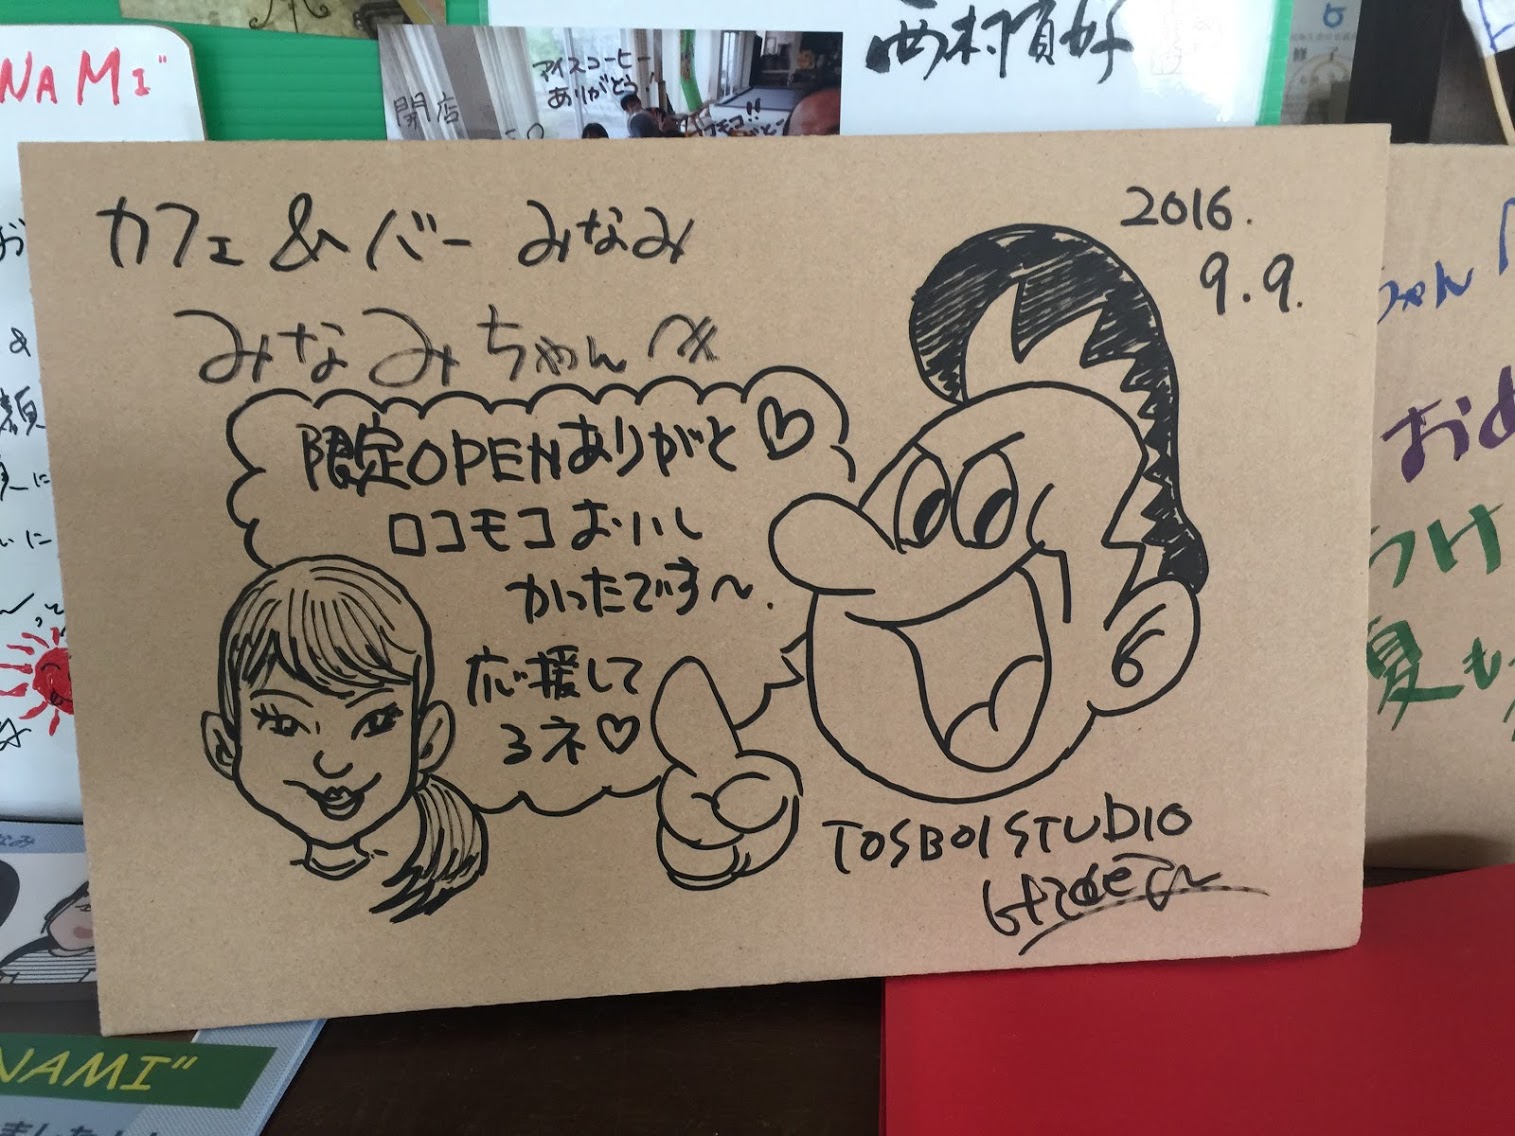 NAMI"
アイスコーヒー
ありがとう!
開店
西村
カフェ & バー みなみ
みなみちゃん へ
限定OPENありがと♡
ロコモコおいし
かったです〜.
応援して
るネ♡
2016.
9.9.
TOSBOI STUDIO
ちゃん
おめ
夏も
NAMI"